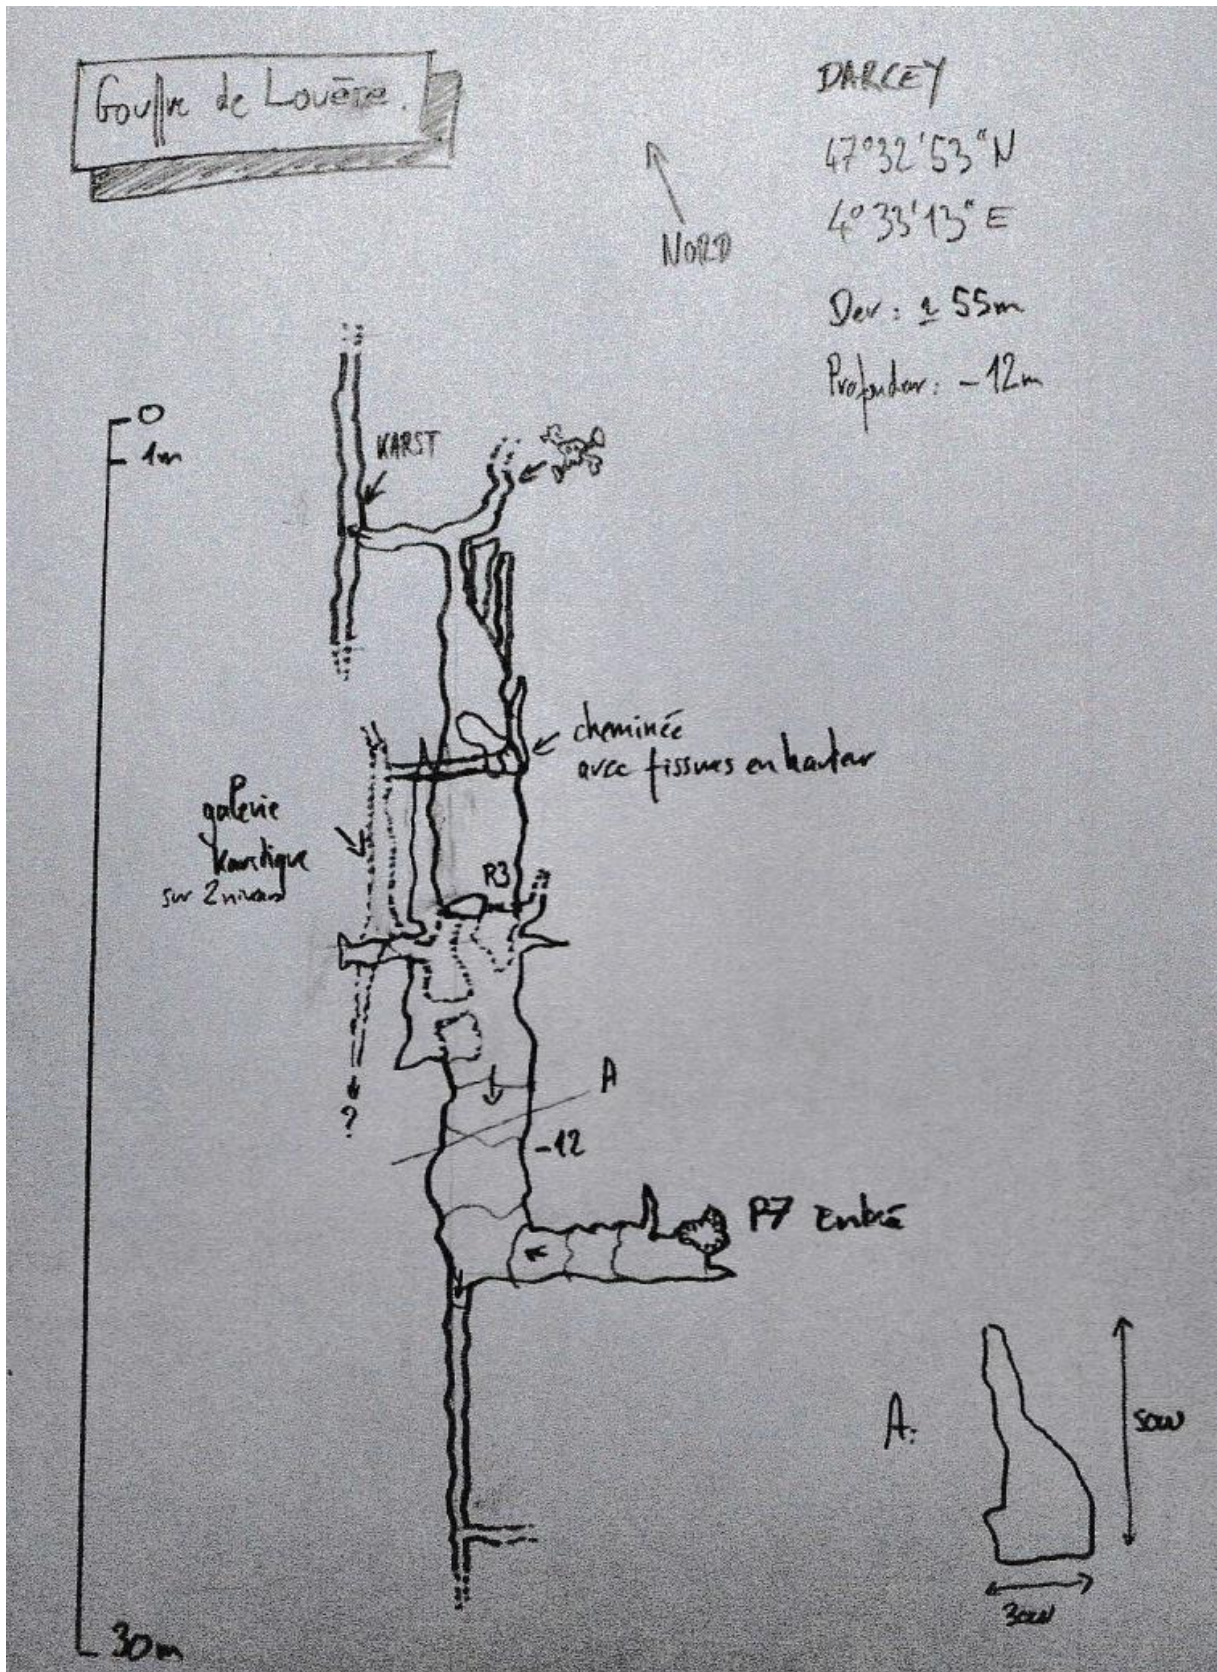 Gouffre de Louère.
DARCEY
47°32'53"N
4°33'13"E
NORD
Dev: ± 55m
Profondeur: -12m
0
1m
KARST
cheminée
avec fissures en hauteur
galerie
Karstique
sur 2 niveaux
R3
A
?
-12
P7 Entrée
A:
50cm
30cm
30m